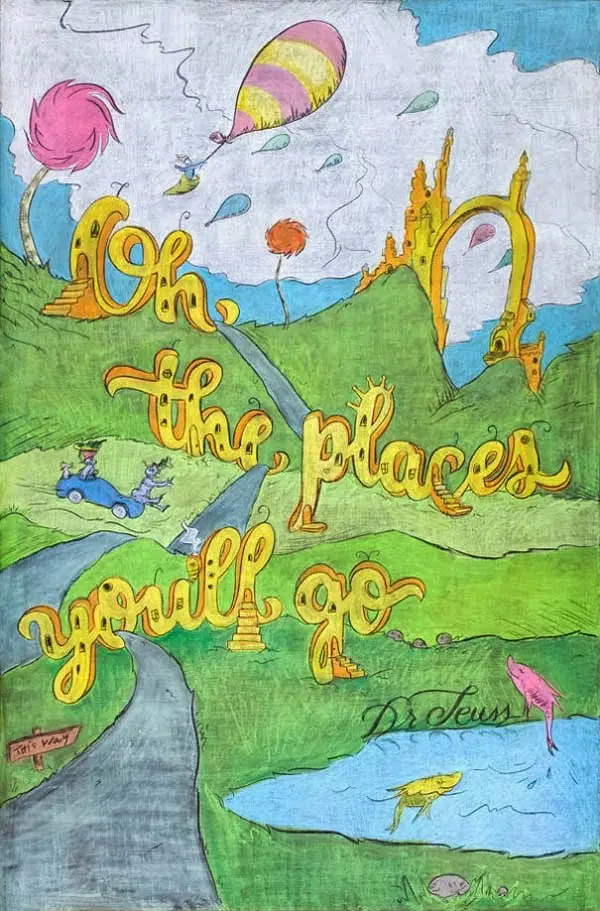 Oh,
the places
you'll go
Dr Seuss
THIS WAY